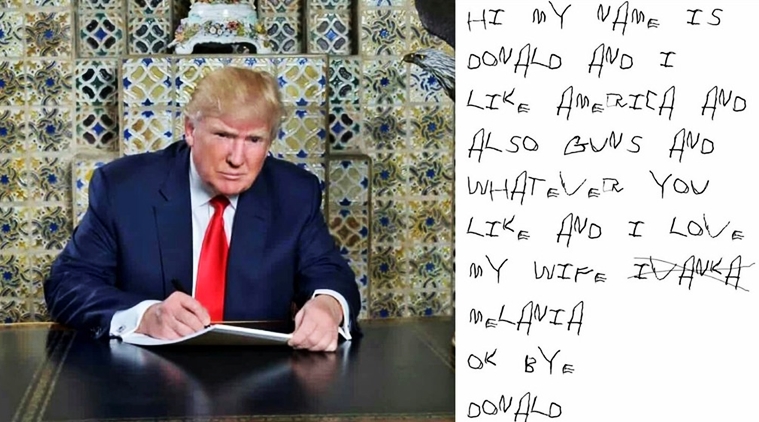 HI MY NAME IS
DONALD AND I
LIKE AMERICA AND
ALSO GUNS AND
WHATEVER YOU
LIKE AND I LOVE
MY WIFE IVANKA
MELANIA
OK BYE
DONALD